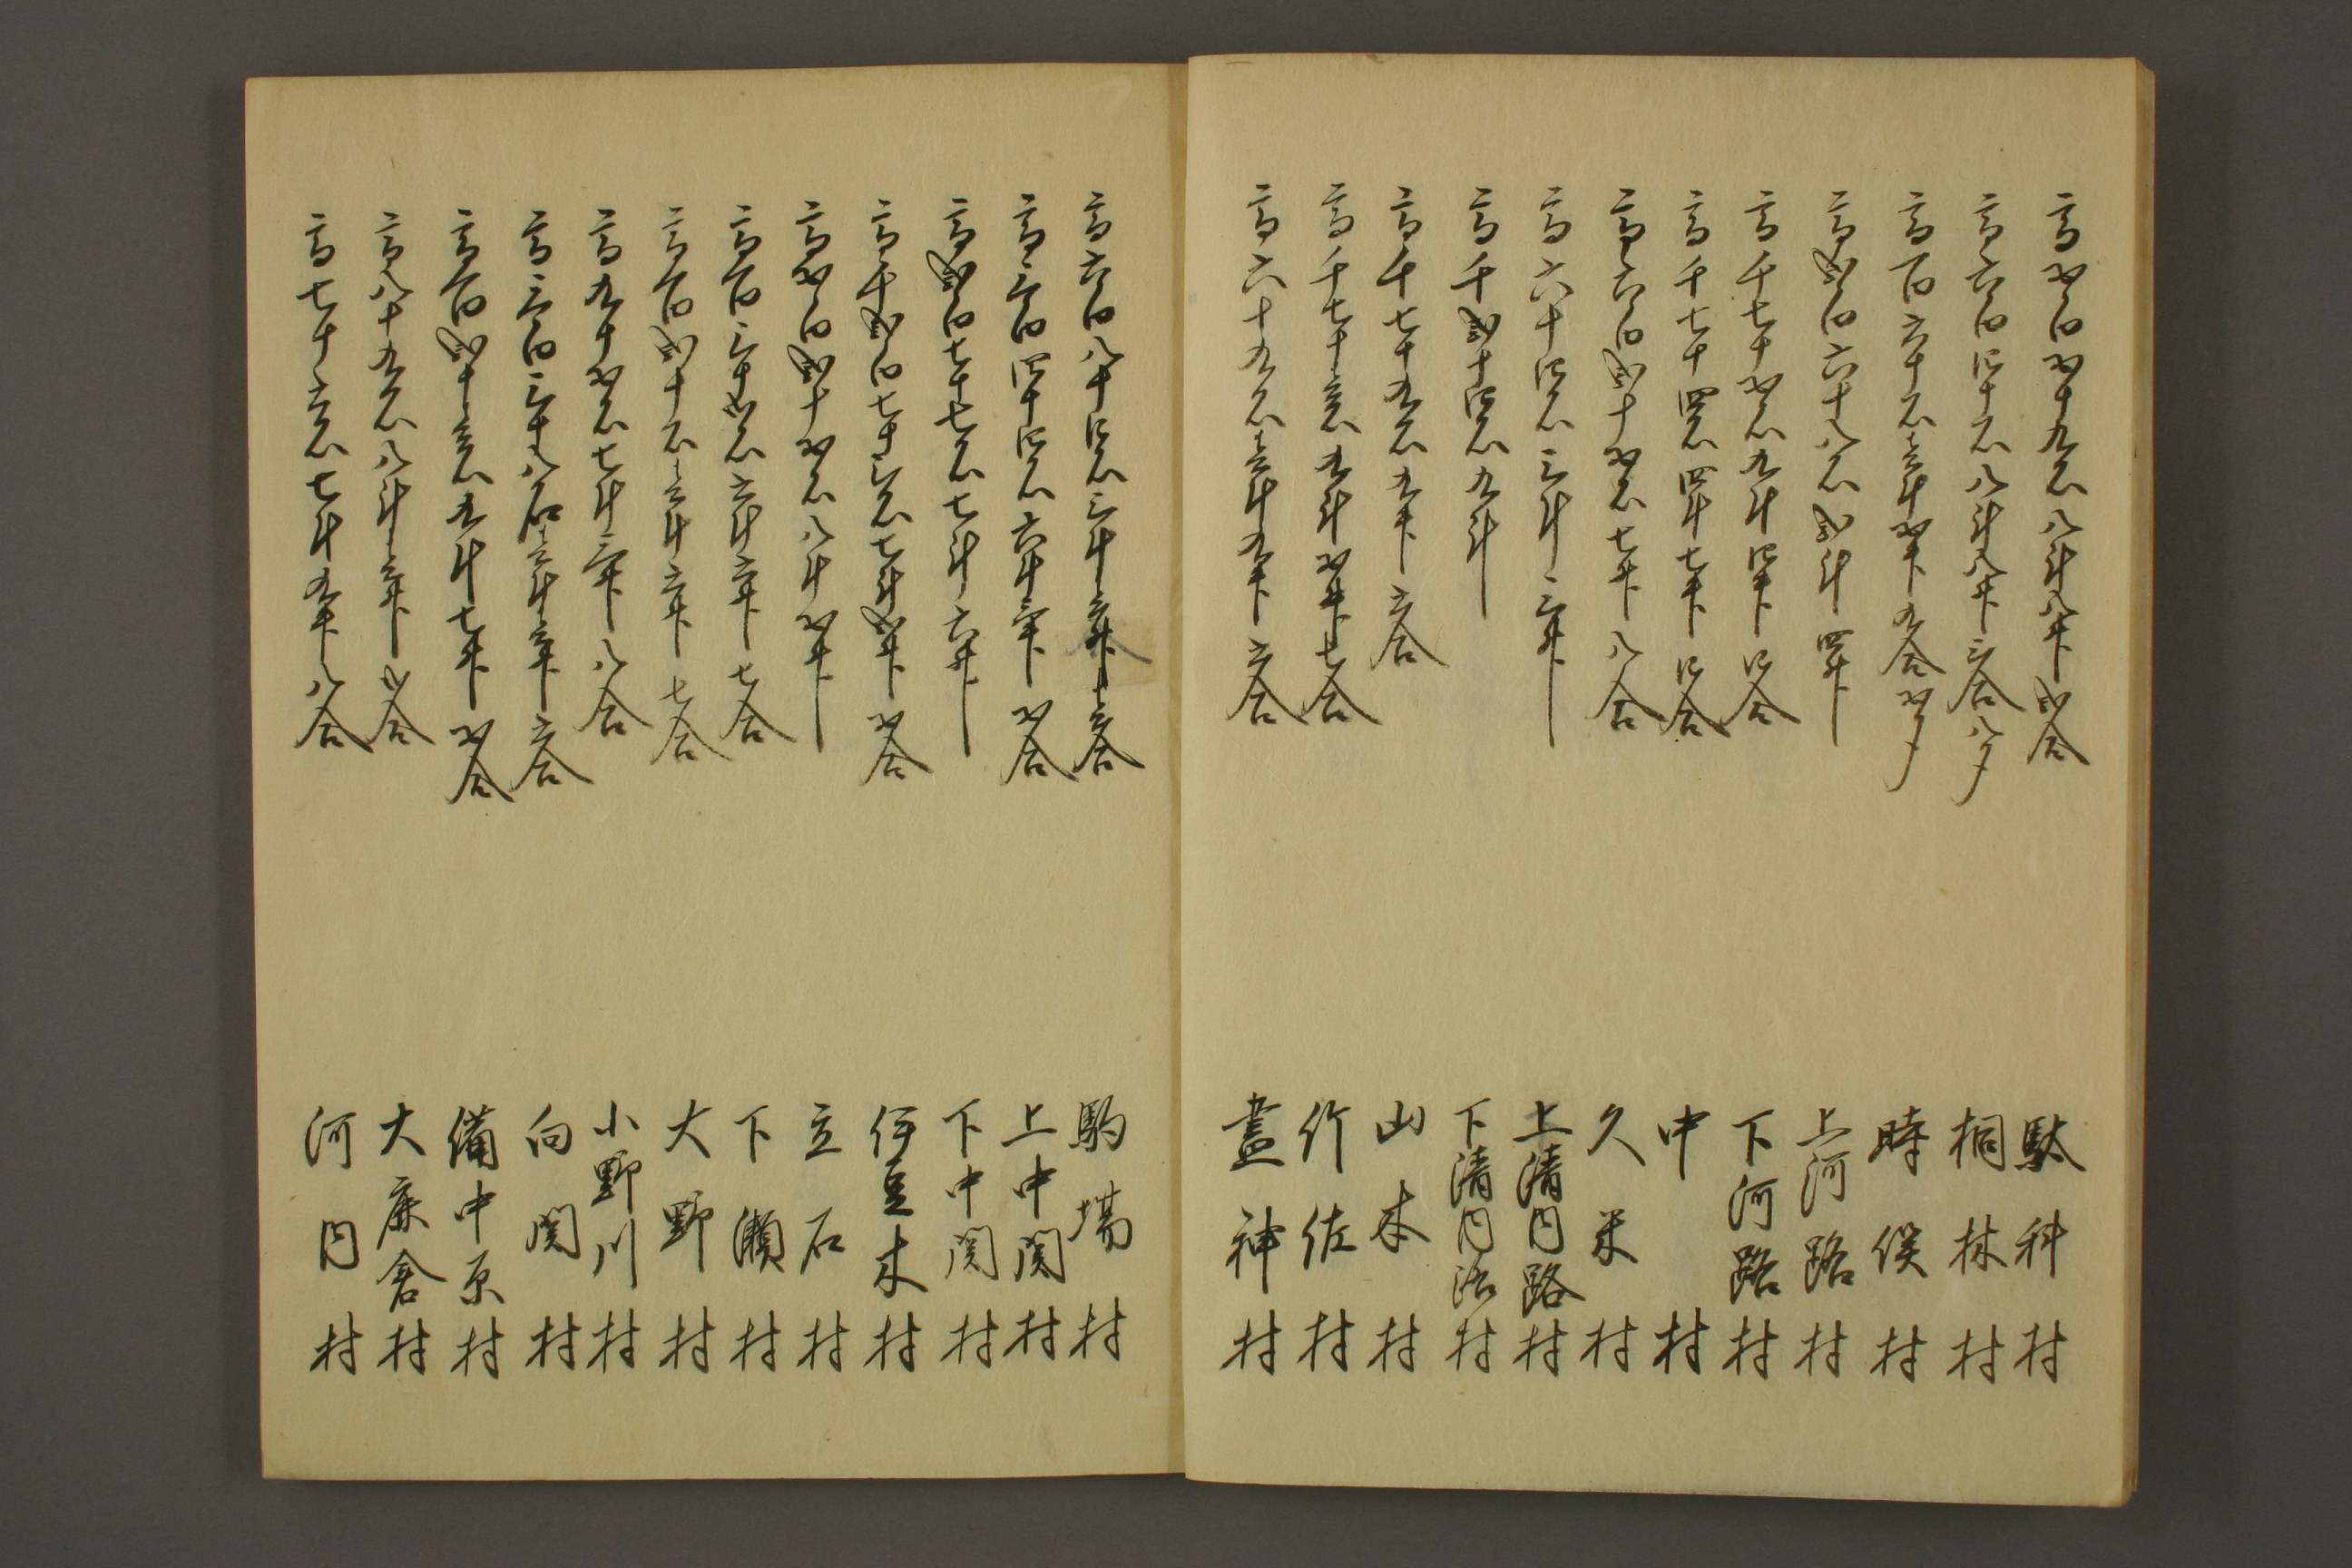 高五百五十九石八斗八升弐合　駄科村
高六百四十石八斗八升三合八夕　桐林村
高百六十石壱斗五升九合五夕　時俣村
高弐百六十八石弐斗四升　上河路村
高千七十五石九斗四升四合　下河路村
高千七十四石四斗七升四合　中村
高六百弐十五石七升八合　久米村
高六十四石三斗三升　上清内路村
高千弐十四石九斗　下清内路村
高千七十九石九升六合　山本村
高千七十壱石九斗五升七合　竹佐村
高六十九石壱斗九升六合　晝神村
高六百八十四石三斗壱升壱合　駒場村
高三百四十四石六斗三升五合　上中関村
高弐百七十七石七斗六升　下中関村
高千弐百七十三石七斗弐升五合　伊豆木村
高五百弐十五石八斗五升　立石村
高百三十弐石六斗六升七合　下瀬村
高百弐十石壱斗六升七合　大野村
高九十五石七斗三升八合　小野川村
高三百三十八石壱斗壱升六合　向関村
高百弐十壱石九斗七升五合　備中原村
高八十九石八斗壱升弐合　大鹿倉村
高七十六石七斗九升八合　河内村